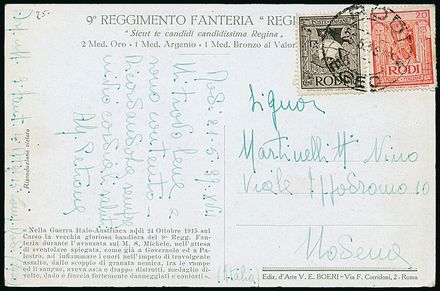 25-
9° REGGIMENTO FANTERIA "REGI
"Sicut te candidi candidissima Regina"
2 Med. Oro - 1 Med. Argento - 1 Med. Bronzo al Valor
RODI
20
RODI
Rodi 21.5.39.XVII
Mi trovo bene e
sono contento
Ricordandola sempre
cordiali saluti
Signor
Martinelli Nino
Viale Ippodromo 10
Modena
(Italia)
"Riproduzione vietata"
«Nella Guerra Italo-Austriaca addì 24 Ottobre 1915 sul
Carso la vecchia gloriosa bandiera del 9° Regg. Fan-
teria durante l'avanzata sul M. S. Michele, nell'attesa
di sventolare spiegata, come già a Governolo ed a Pa-
lestro, ad infiammare i cuori nell'impeto di travolgente
assalto, dallo scoppio di granata nemica, tra le vampe
ed il sangue, aveva asta e drappo distrutti, medaglie di-
velte, dado e freccia fortemente danneggiati e contorti».
Ediz. d'Arte V. E. BOERI - Via F. Corridoni, 2 - Roma